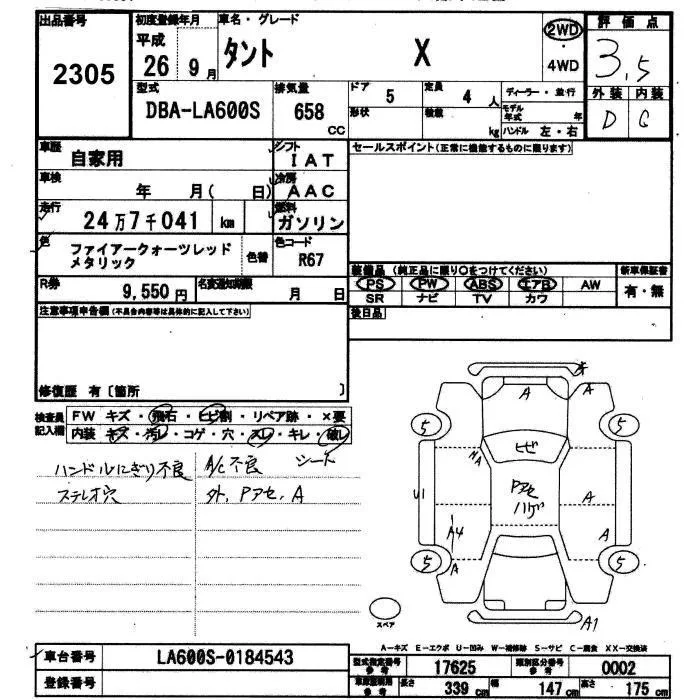 出品番号 2305
初度登録年月 平成 26年 9月
車名・グレード タント X
2WD ・ 4WD
評価点 3.5
外装 内装
D C
型式 DBA-LA600S
排気量 658 CC
ドア 5
形状
定員 4 人
積載 kg
ディーラー・並行
モデル年式 年
ハンドル 左・右
車歴 自家用
シフト IAT
セールスポイント(正常に機能するものに限ります)
車検 年 月( 日)
冷房 AAC
走行 24万7千041 km
燃料 ガソリン
色 ファイアークォーツレッド
メタリック
色替
色コード R67
R券 9,550円
名変通知期限 月 日
装備品 (純正品に限り○をつけてください)
PS PW ABS エアB AW
SR ナビ TV カワ
新車保証書 有・無
後日品
注意事項申告欄(不具合内容等は具体的に記入して下さい)
修復歴 有〔箇所 〕
検査員記入欄
FW キズ・飛石・ヒビ割・リペア跡・×要
内装 キズ・汚レ・コゲ・穴・スレ・キレ・破レ
ハンドルにぎり不良 A/C不良 シート
ステレオ穴 外、Pアセ、A
A
5 5
ヒビ
NA
Pアセ
ハゲ
U1
A
A4
A
A
5 5
スペア
A1
A-キズ E-エクボ U-凹み W-補修跡 S-サビ C-腐食 XX-交換済
車台番号 LA600S-0184543
登録番号
型式指定番号 参考 17625
類別区分番号 参考 0002
車両寸法 参考 長さ 339 cm 幅 147 cm 高さ 175 cm